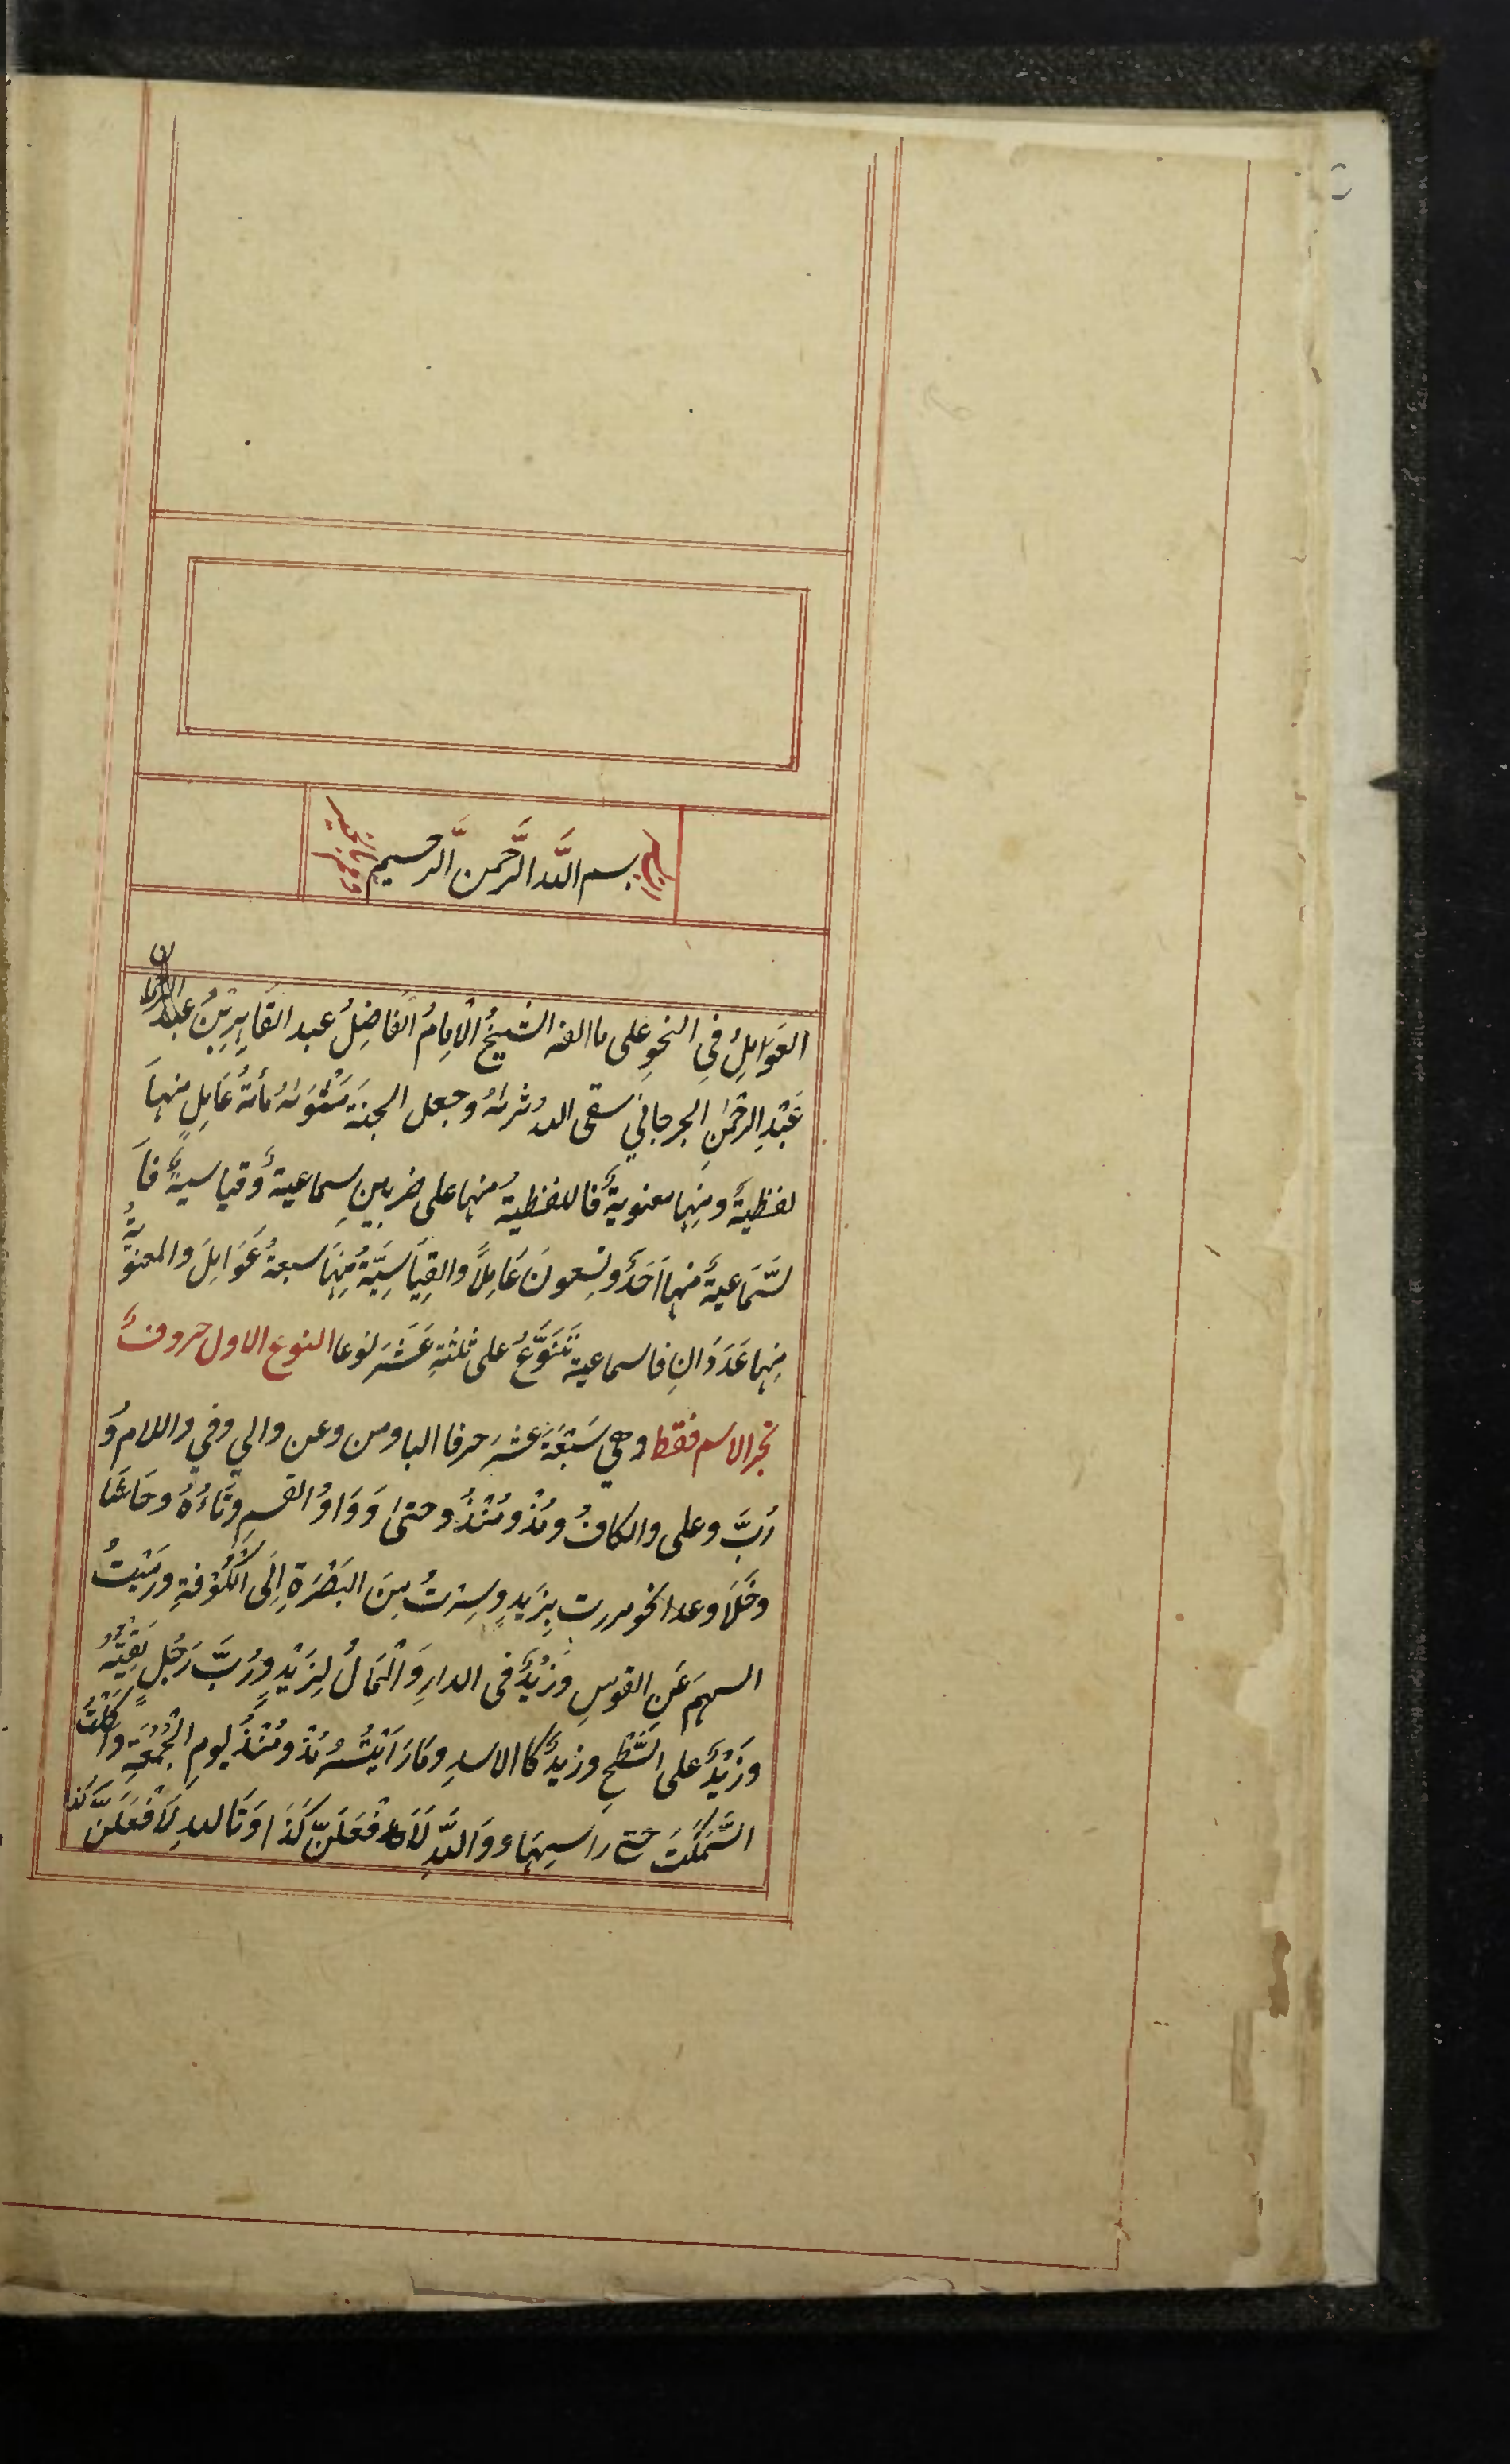 بسم الله الرَّحمن الَّرحيم
العَوَامِلُ فِي النحوِ على ما الفه الشيخُ الْاِمامُ الفَاضِلُ عبد القَاهِرِ بْنُ عبد
عَبْدِ الرحْمٰنِ الجرجانيِ سقى اللهُ ثراهُ وجعل الجنة مَثْوَاهُ مأئةُ عَامِلٍ منها
لفظيةٌ ومِنها معنويةٌ فاللفظيةُ منها على ضربينِ سماعيةٌ وقياسيةٌ فَا
لسَّمَاعيةُ منها اَحَدٌ وتِسعونَ عَامِلاً والقِيَاسِيَّةُ مِنْهَا سبعةُ عَوَامِلَ والمعنويةُ
مِنها عَدَدَانِ فالسماعية تَتَنَوَّعُ على ثلثةِ عَشَرَ نوعا النوع الاول حروفٌ
تجر الاسم فقط وهي سَبْعَةَ عشرَ حرفا البا ومن وعن والي وفي واللامُ وَ
رُبَّ وعلى والكافُ ومُذْ ومُنْذُ وحتىٰ وَوَاوُ القسمِ وتَاءُهُ وحَاشَا
وخَلَا وعدا نحو مررت بِزَيدٍ وسِرْتُ مِنَ البَصْرَةِ اِلَى الْكُوْفةِ ورمَيْتُ
السهمَ عَنِ القوسِ وَزَيْدٌ فى الدارِ وَالْمَالُ لِزَيْدٍ ورُبَّ رَجُلٍ لَقِيْتُهُ
وزَيْدٌ على السَّطْحِ وزيدٌ كا الاسدِ ومَا رَاَيْتُهُ مُذْ ومُنْذُ يومِ الْجُمُعَةِ واَكَلْتُ
السَّمَكَتَ حتى راسِهَا ووَاللهِ لَاَفْعَلَنَّ كَذَا وَتَاللهِ لَاَفْعَلَنَّ كَذَا